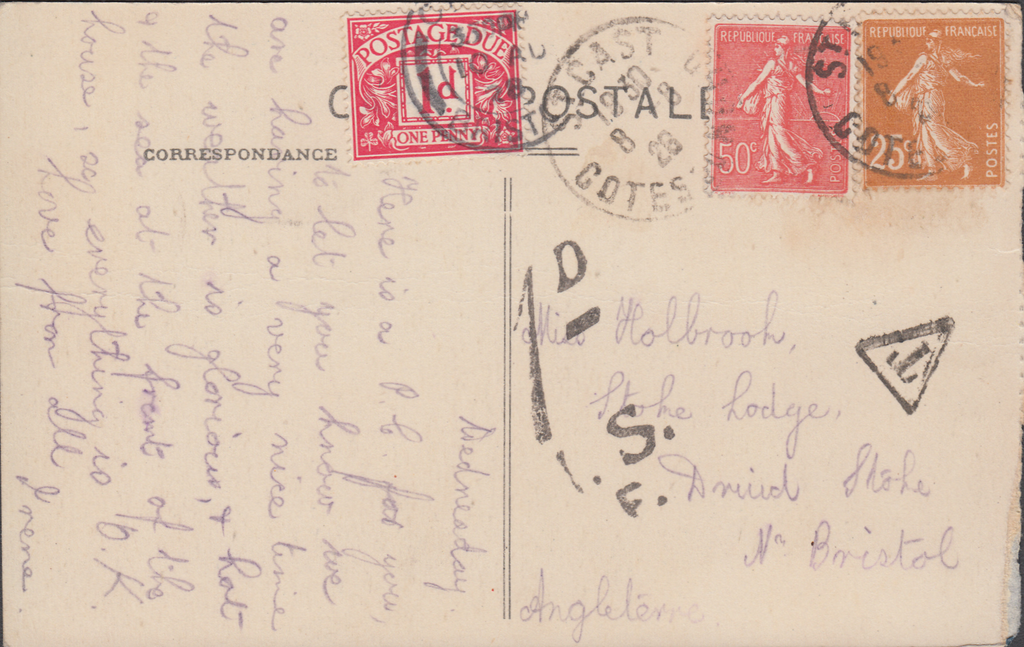 CORRESPONDANCE
POSTAGE DUE
1d
ONE PENNY
RÉPUBLIQUE FRANÇAISE
50c
POSTES
RÉPUBLIQUE FRANÇAISE
25c
POSTES
ST CAST
8
26
COTES
Wednesday.
Here is a P C for you,
to let you know we
are having a very nice time
the weather is glorious, & hot
& the sea at the front of the
house, so everything is O.K.
love from all
Irene.
1D
S.
F.
T
Miss Holbrook,
Stoke Lodge,
Druid Stoke
Nr Bristol
Angleterre